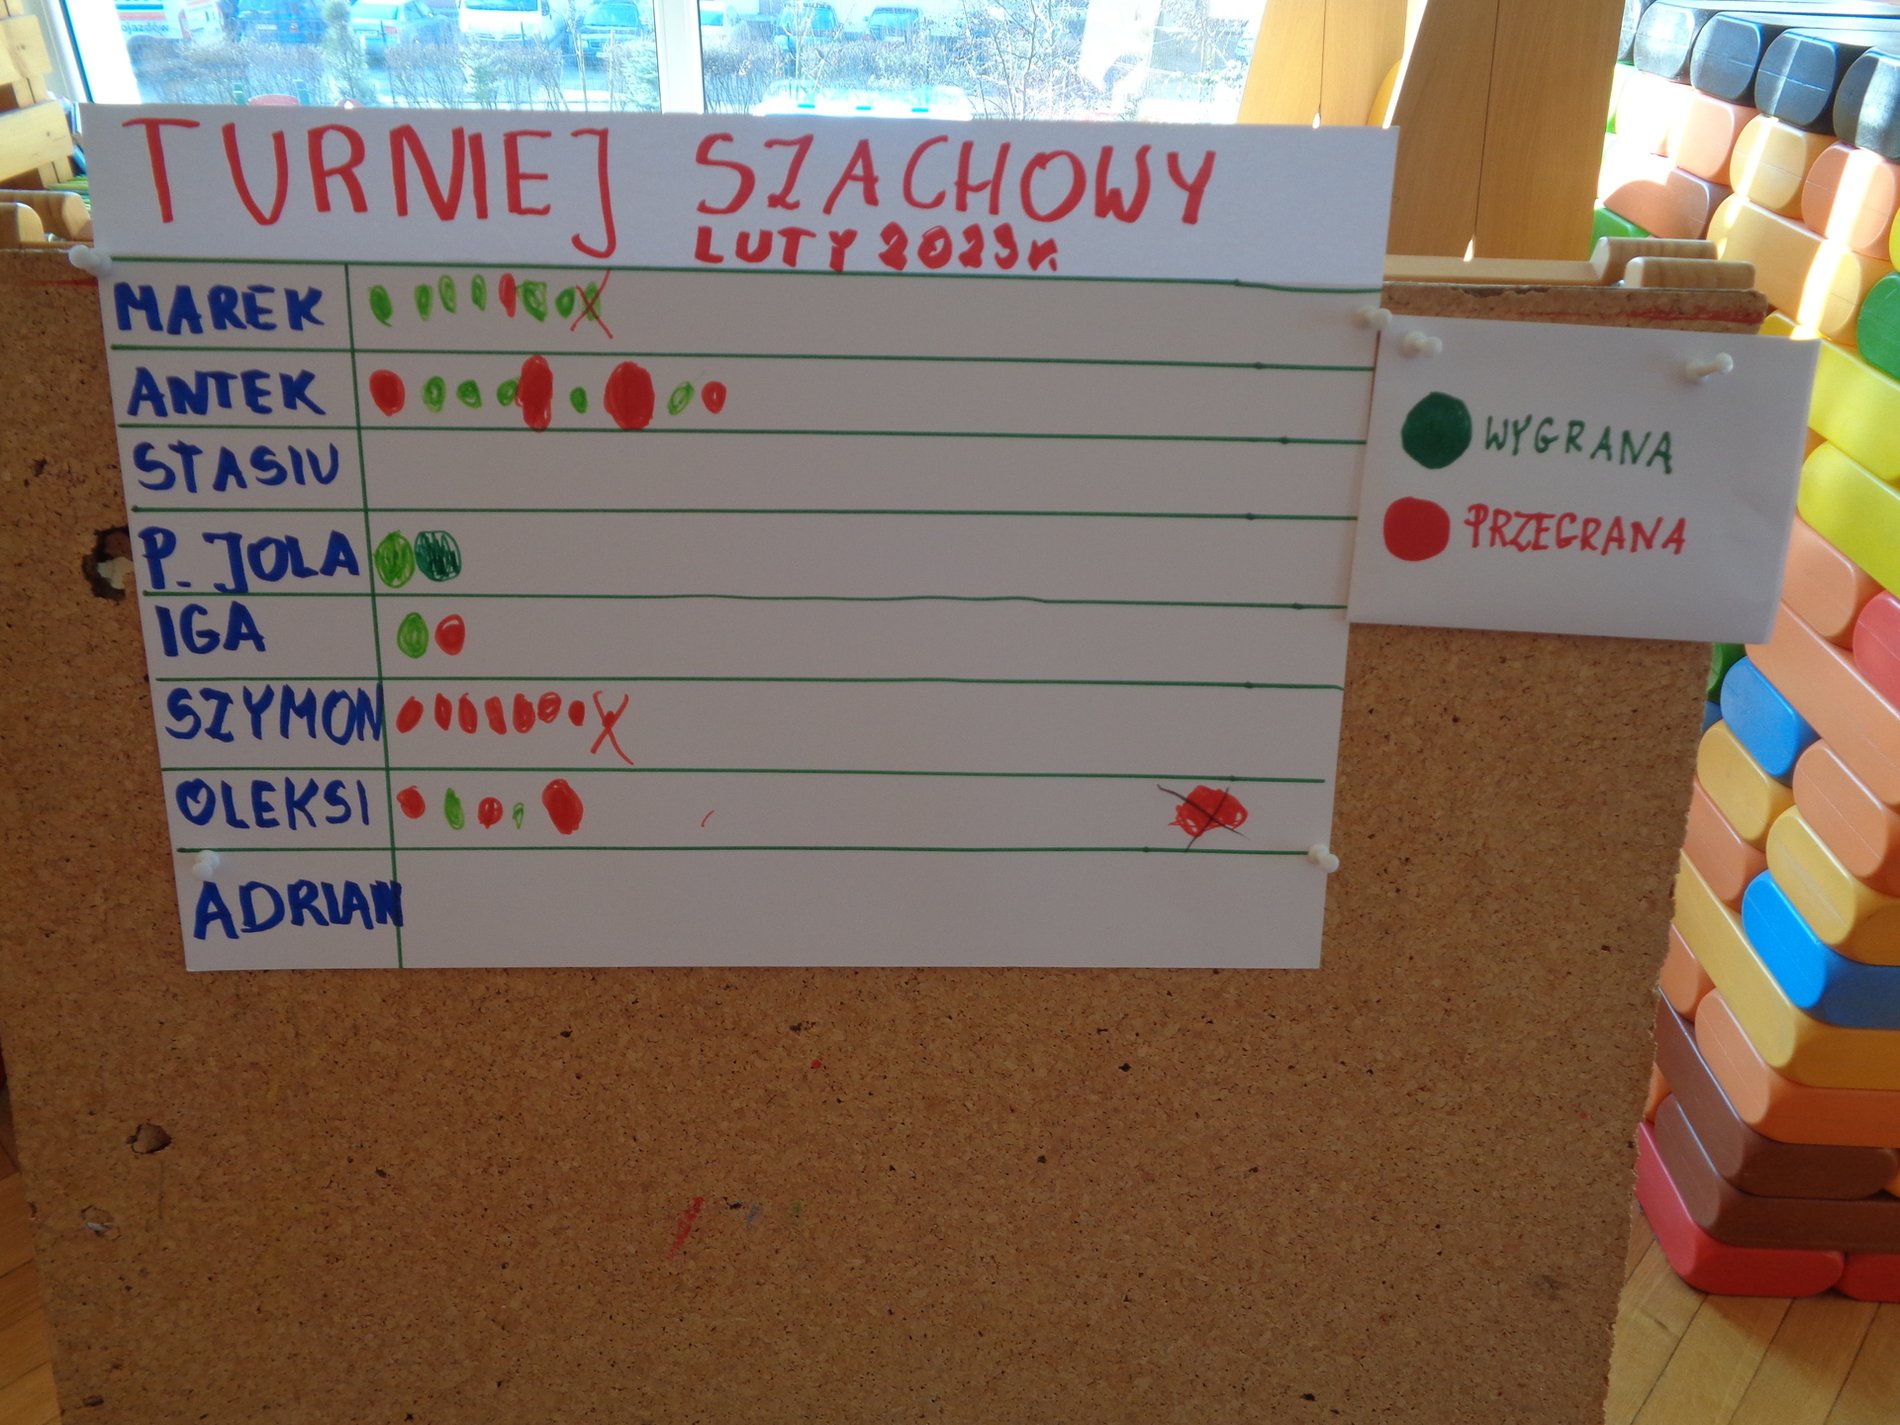 TURNIEJ SZACHOWY
LUTY 2023r.
MAREK
ANTEK
STASIU
P. JOLA
IGA
SZYMON
OLEKSI
ADRIAN
WYGRANA
PRZEGRANA